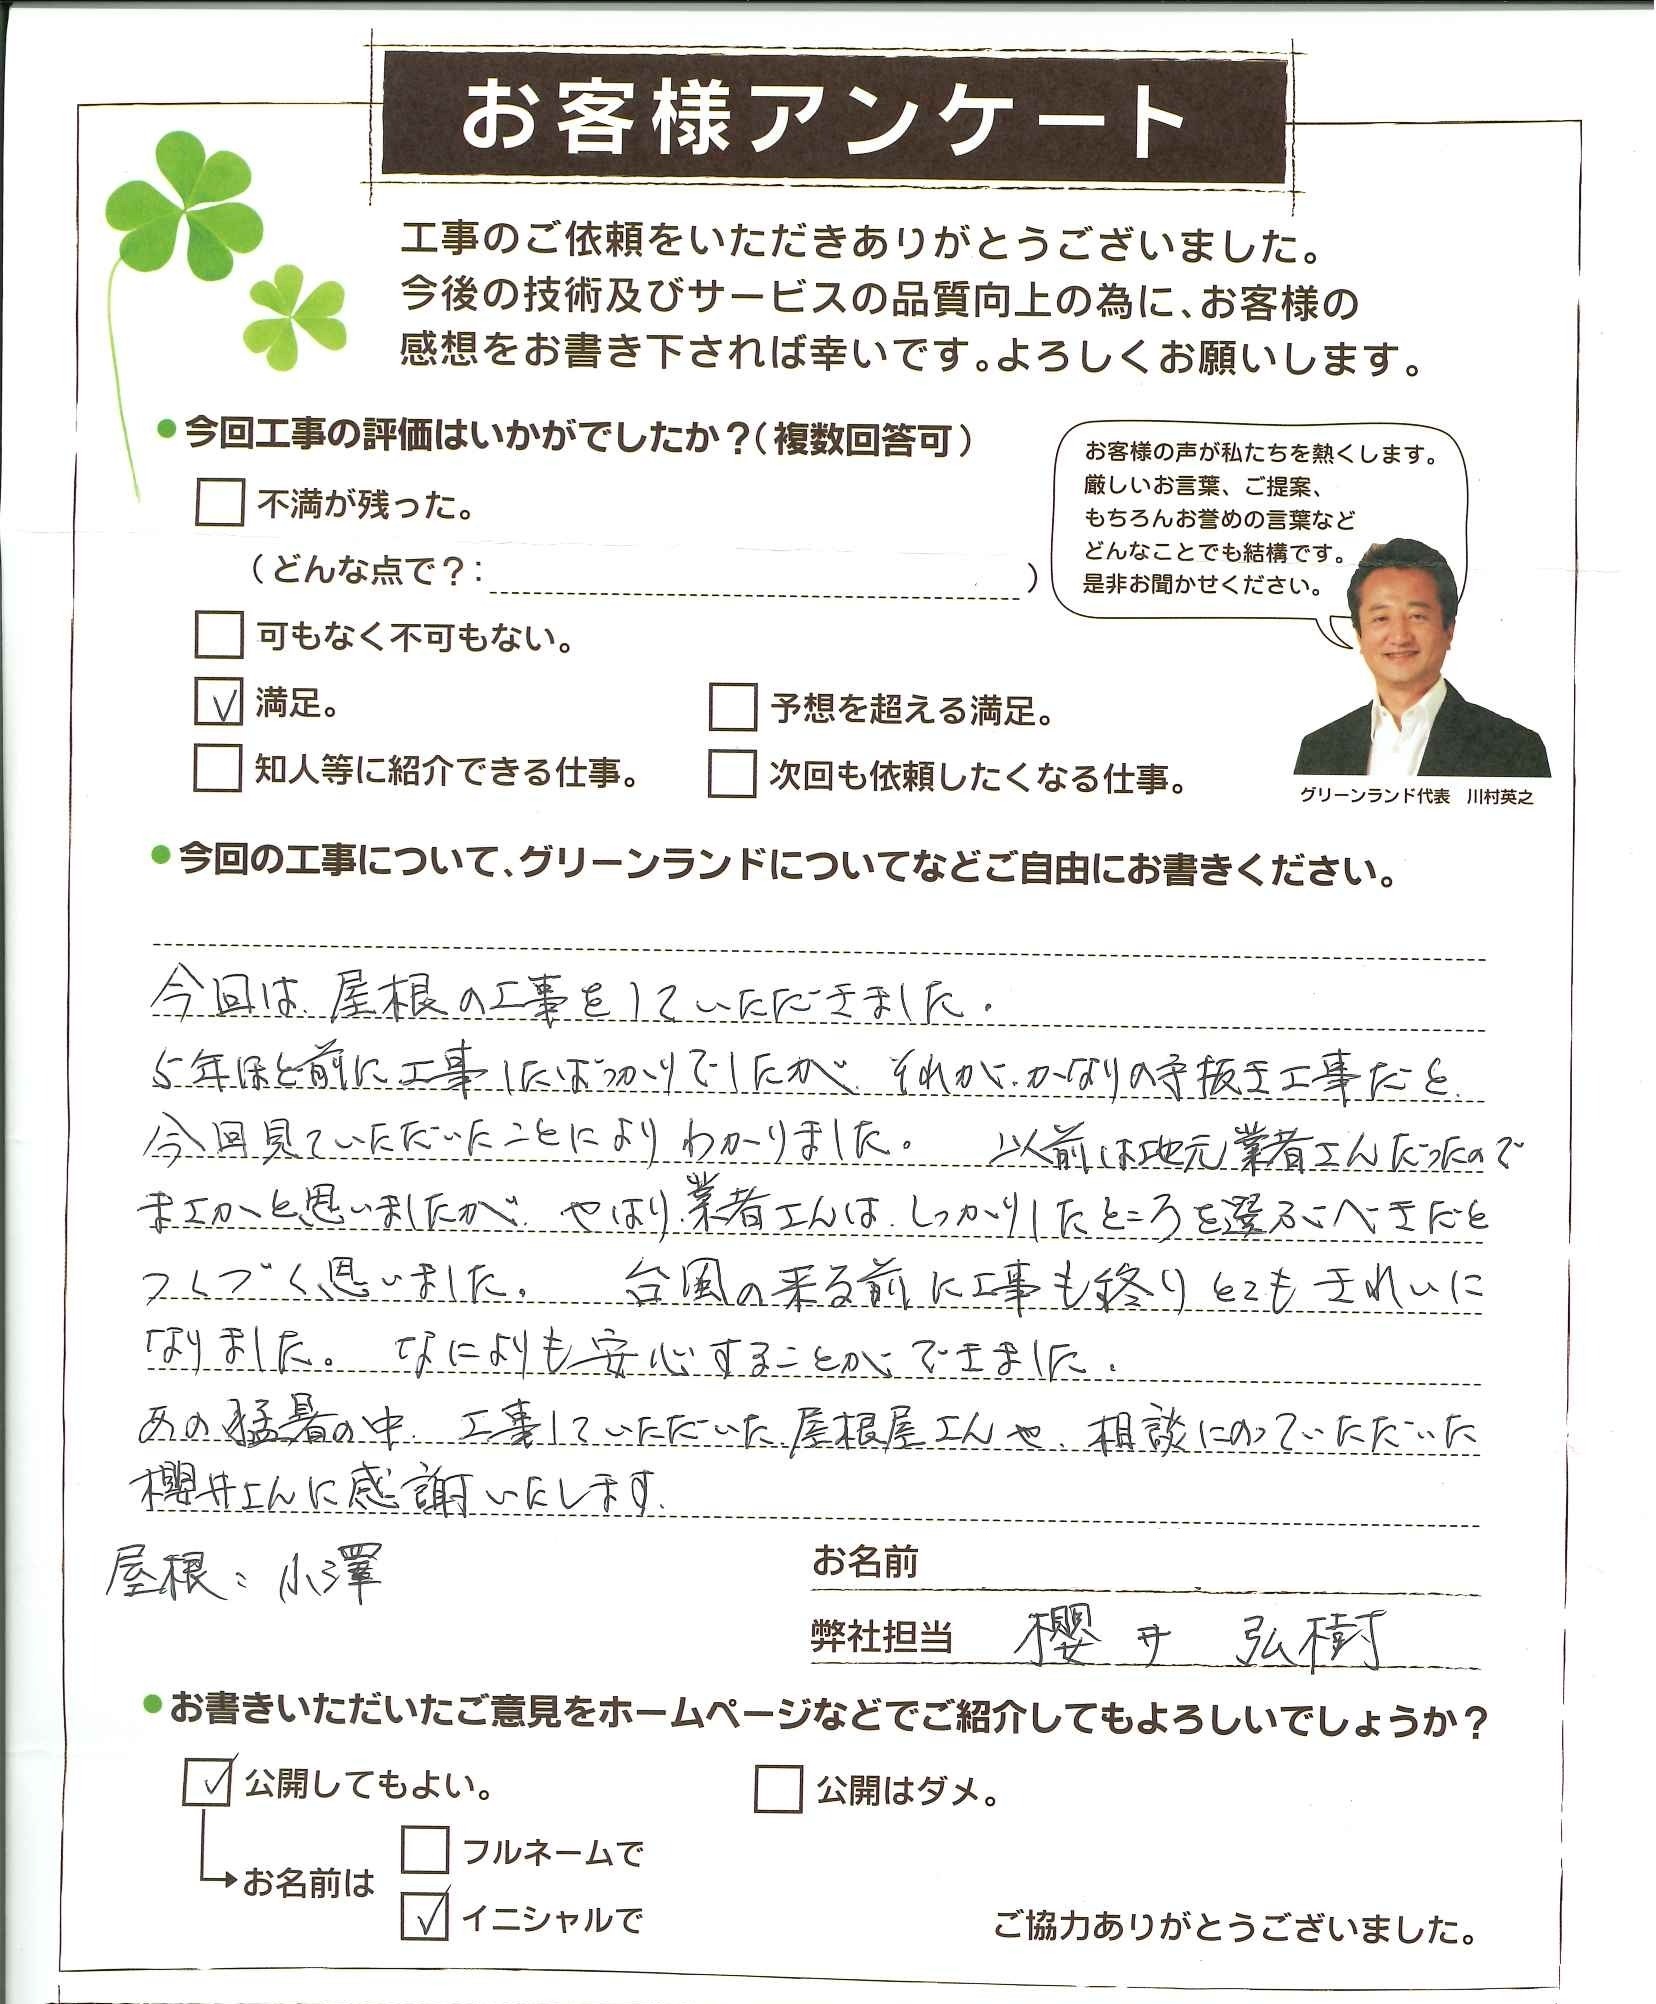 お客様アンケート
工事のご依頼をいただきありがとうございました。
今後の技術及びサービスの品質向上の為に、お客様の
感想をお書き下されば幸いです。よろしくお願いします。
●今回工事の評価はいかがでしたか？（複数回答可）
不満が残った。
（どんな点で？：　）
可もなく不可もない。
満足。
予想を超える満足。
知人等に紹介できる仕事。
次回も依頼したくなる仕事。
お客様の声が私たちを熱くします。
厳しいお言葉、ご提案、
もちろんお誉めの言葉など
どんなことでも結構です。
是非お聞かせください。
グリーンランド代表　川村英之
●今回の工事について、グリーンランドについてなどご自由にお書きください。
今回は、屋根の工事をしていただきました。
5年ほど前に工事したばっかりでしたが、それが、かなりの手抜き工事だと、
今回見ていただいたことによりわかりました。　以前は地元業者さんだったので
まさかと思いましたが、やはり、業者さんは、しっかりしたところを選ぶべきだと
つくづく思いました。　台風の来る前に工事も終りとてもきれいに
なりました。　なによりも安心することができました。
あの猛暑の中、工事していただいた、屋根屋さんや、相談にのっていただいた
櫻井さんに感謝いたします。
屋根：小澤
お名前
弊社担当　櫻井　弘樹
●お書きいただいたご意見をホームページなどでご紹介してもよろしいでしょうか？
公開してもよい。
公開はダメ。
お名前は
フルネームで
イニシャルで
ご協力ありがとうございました。